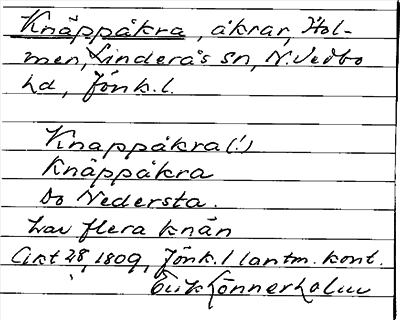 Knäppåkra, åkrar, Hol-
men, Linderås sn, N. Vedbo
hd, Jönk. l.
Knappåkra (!)
Knäppåkra
Do Nedersta.
har flera knän
Akt 28, 1809, Jönk. l lantm. kont.
Erik Lönnerholm